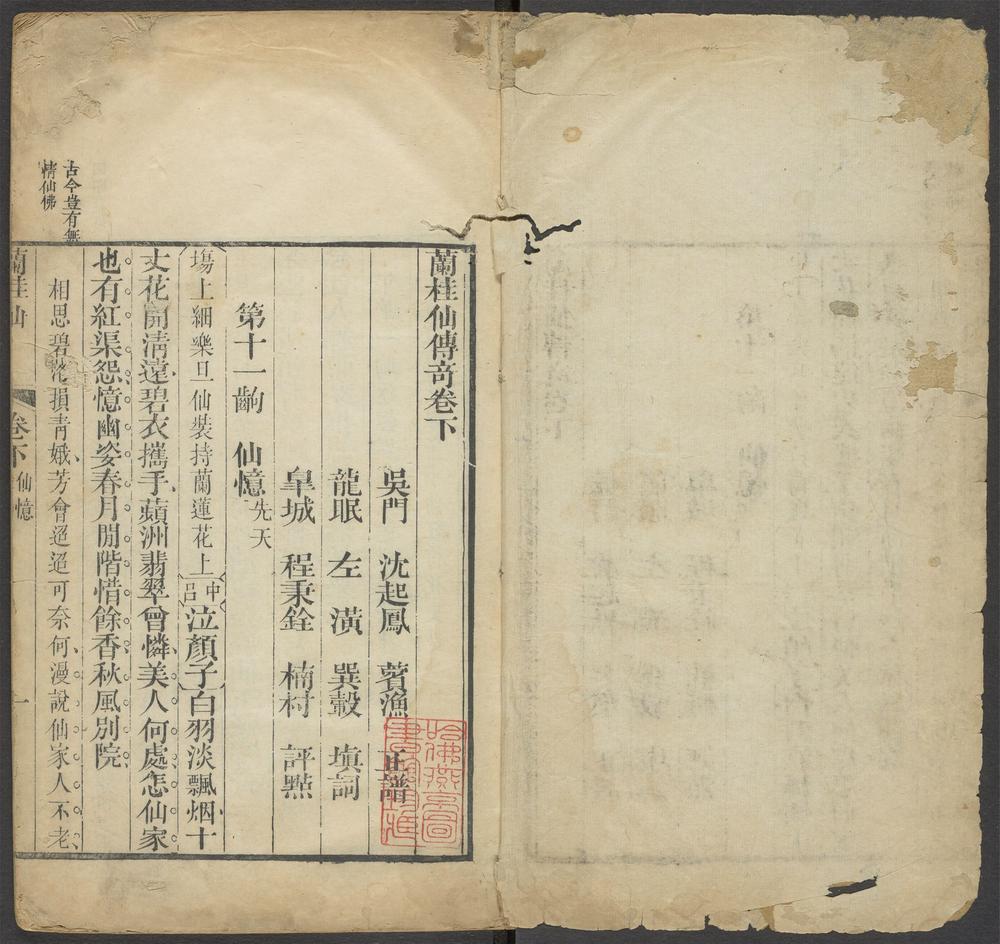 蘭桂仙傳竒卷下
吳門 沈起鳳 薲漁 正譜
龍眠 左潢 巽轂 填詞
皐城 程秉銓 楠村 評㸃
第十一齣 仙憶 先天
塲上細樂旦仙裝持蘭蓮花上 中呂 泣顏子 白羽淡飄烟十
丈花開淸遠碧衣攜手蘋洲翡翠曾憐美人何處怎仙家
也有紅渠怨憶幽姿春月閒階惜餘香秋風別院
相思碧落損靑娥芳會迢迢可奈何漫說仙家人不老
古今豈有無
情仙佛
蘭桂仙 卷下 仙憶 一
哈佛燕京圖